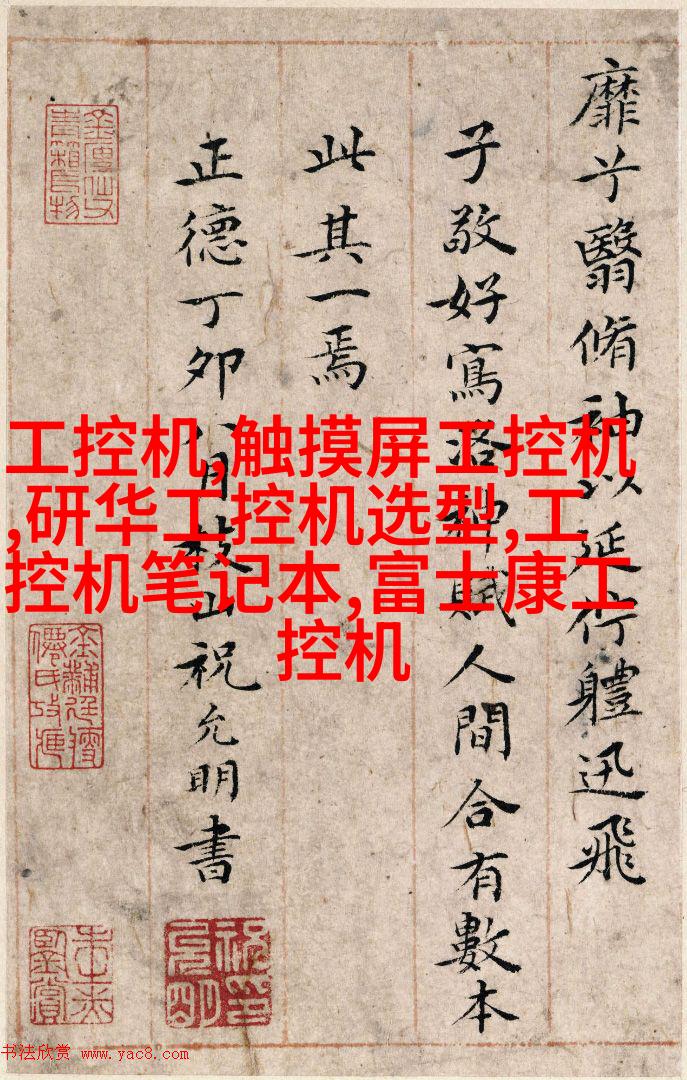 靡兮翳脩袖以延佇體迅飛
子敬好寫洛神賦人間合有數本
此其一焉
正德丁卯八月枝山祝允明書
工控机,触摸屏工控机
,研华工控机选型,工
控机笔记本,富士康工
控机
书法欣赏 www.yac8.com